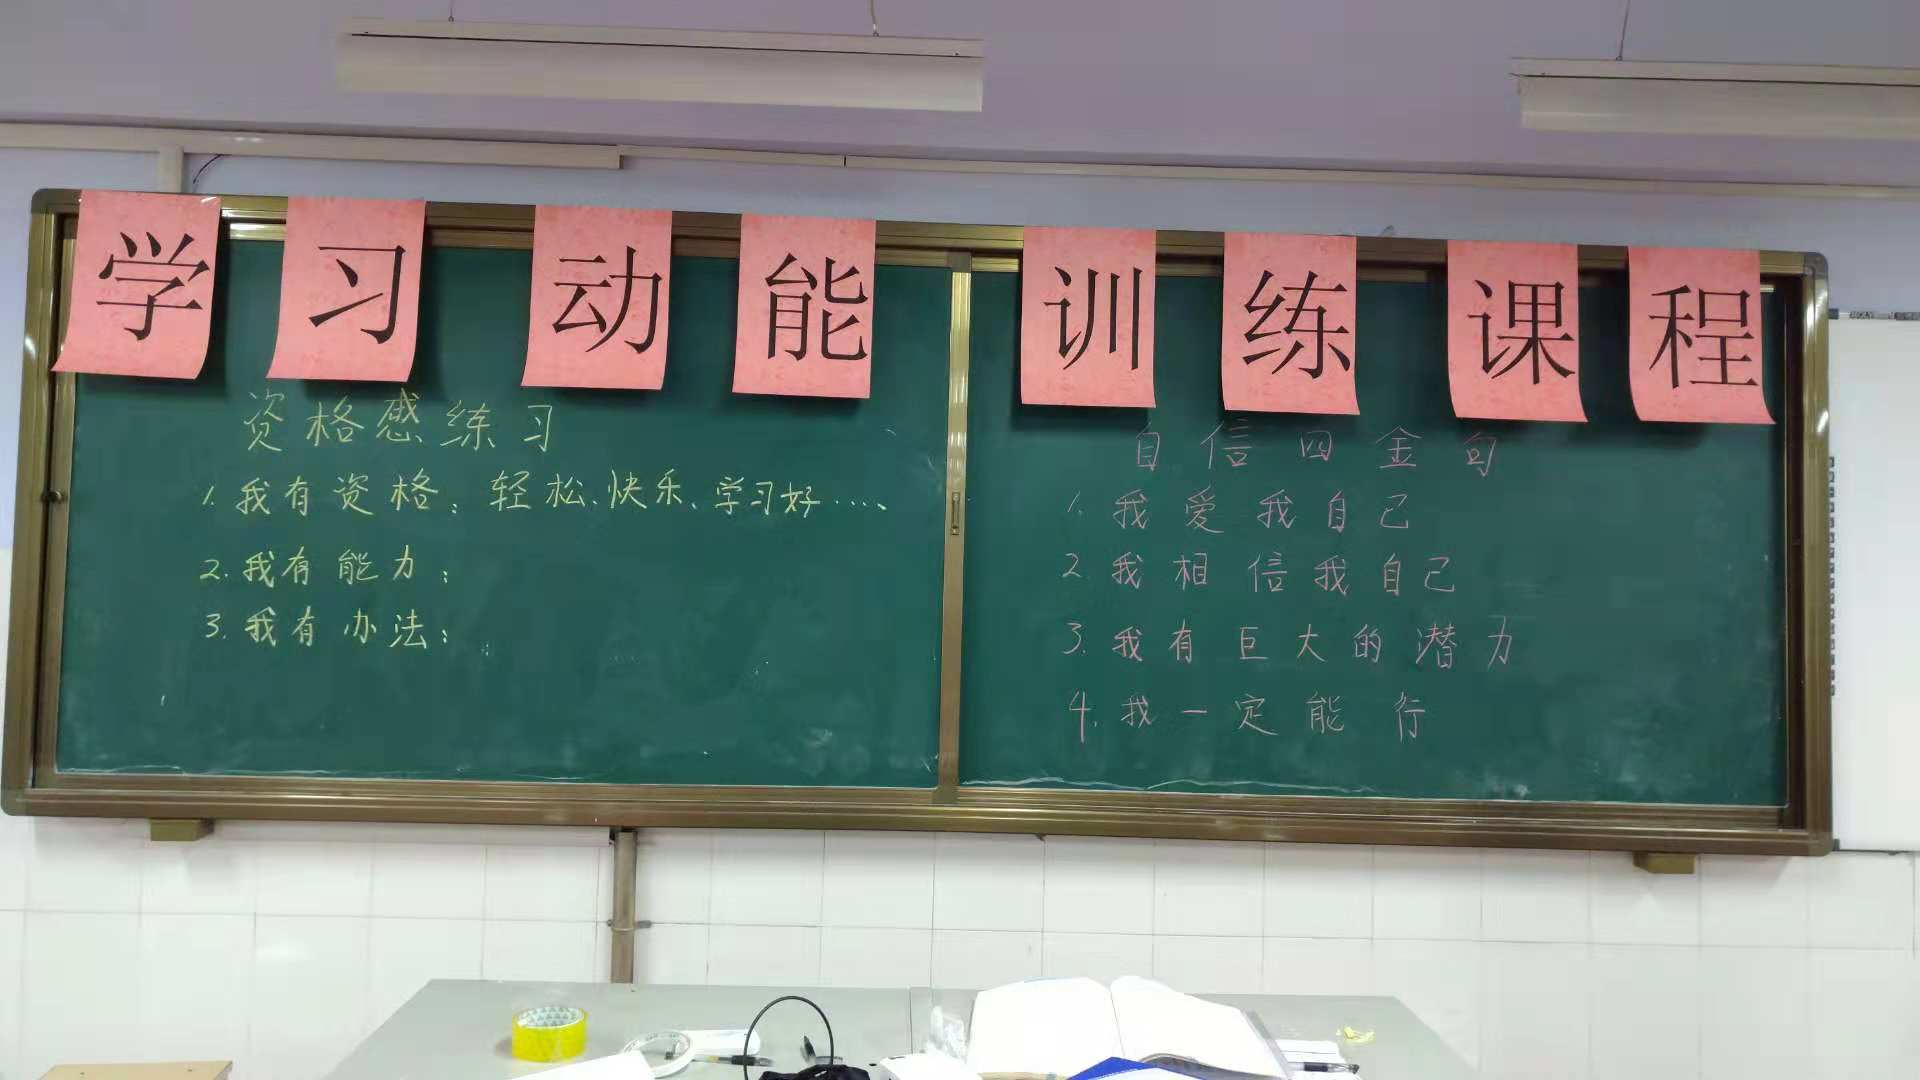 学习动能训练课程
资格感练习
1. 我有资格：轻松、快乐、学习好……
2. 我有能力：
3. 我有办法：
自信四金句
1. 我爱我自己
2. 我相信我自己
3. 我有巨大的潜力
4. 我一定能行